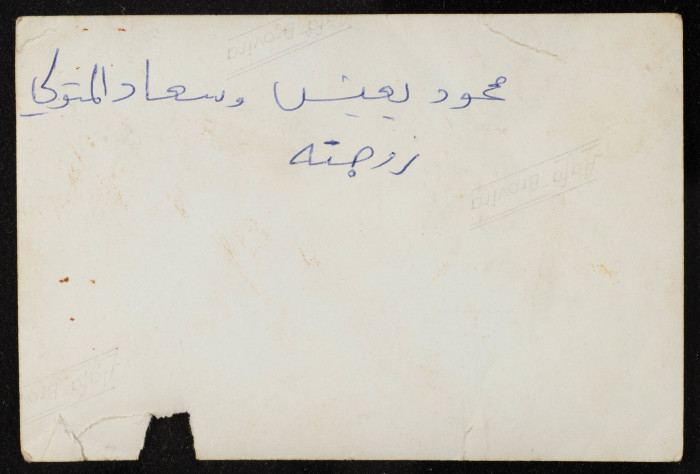 محمود يعيش وسعاد المتوكي
زوجته
Agfa Brovira
Agfa Brovira
Agfa Brov